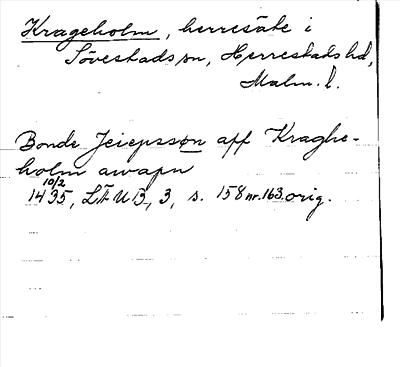 Krageholm, herresäte i
Sövestads sn, Herrestads hd,
Malm. l.
Bonde Jeiepsson aff Kraghe-
holm awapn
10/2
1435, LÄUB, 3, s. 158 nr. 163. orig.